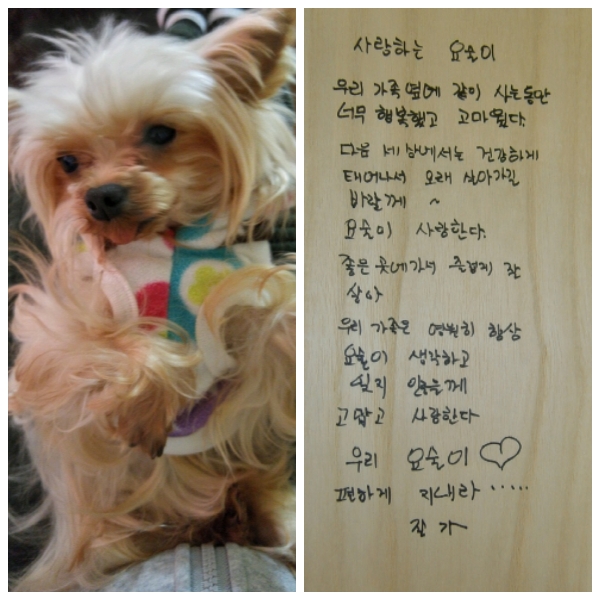 사랑하는 요술이
우리 가족옆에 같이 사는동안
너무 행복했고 고마웠다.
다음 세상에서는 건강하게
태어나서 오래 살아가길
바랄께 ~
요술이 사랑한다.
좋은 곳에가서 즐겁게 잘
살아
우리 가족은 영원히 항상
요술이 생각하고
잊지 않을께
고맙고 사랑한다
우리 요술이 ♡
편하게 지내라 .....
잘 가~